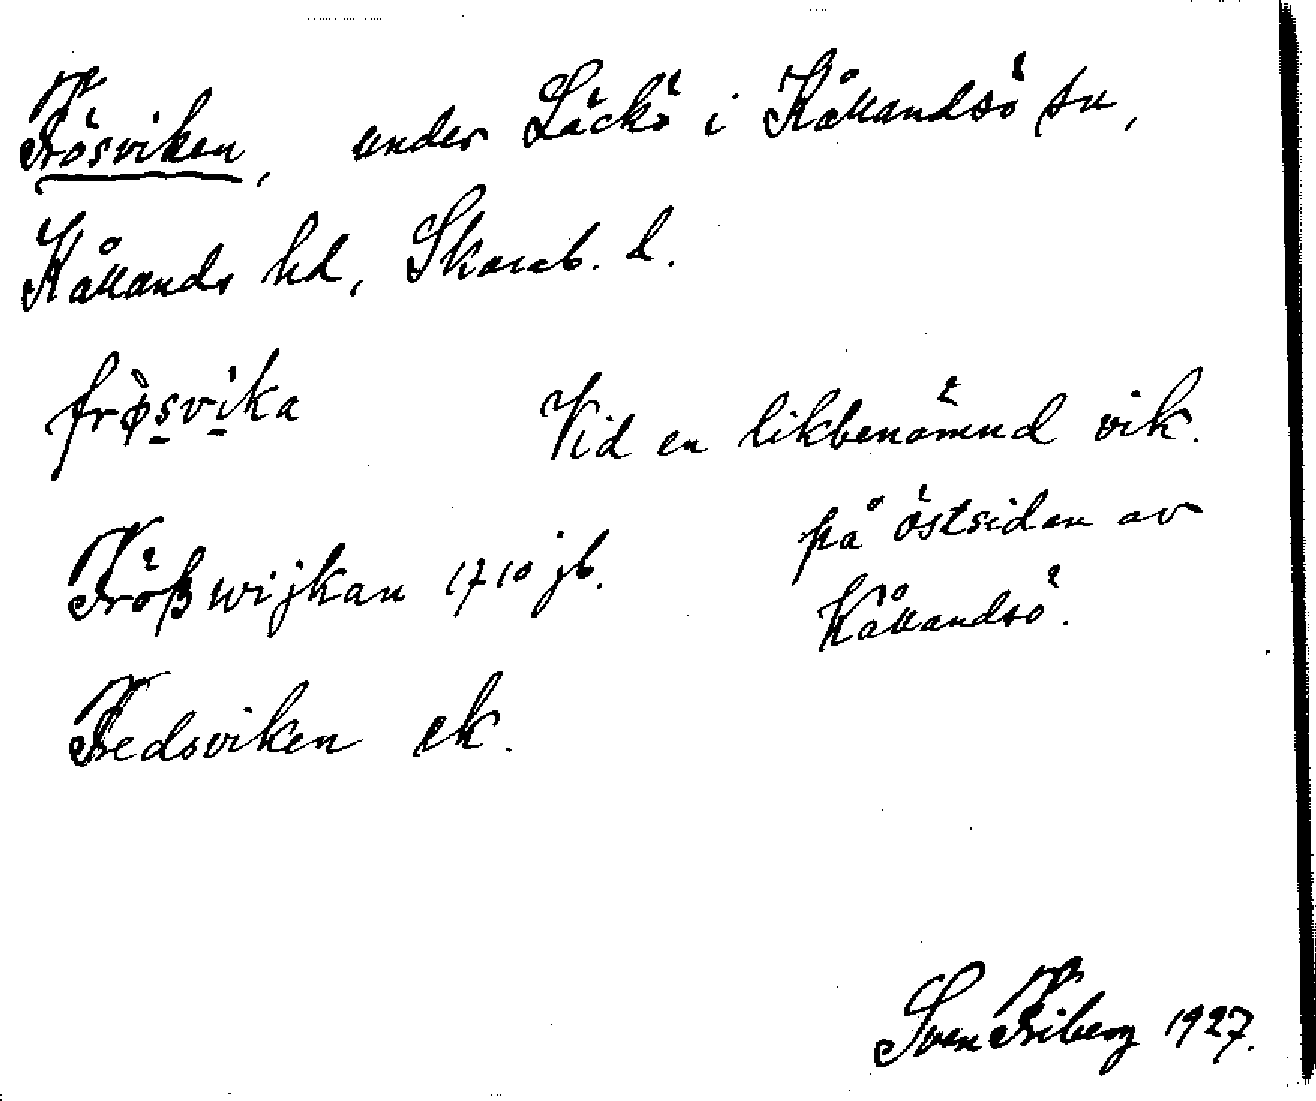 Frösviken, under Läckö i Kållandsö sn,
Kållands hd, Skarab. l.
frø̀svi̍ka
Vid en likbenämnd vik
på östsidan av
Kållandsö.
Frößwijkan 1710 jb.
Fredsviken ek.
Sven Friberg 1927.